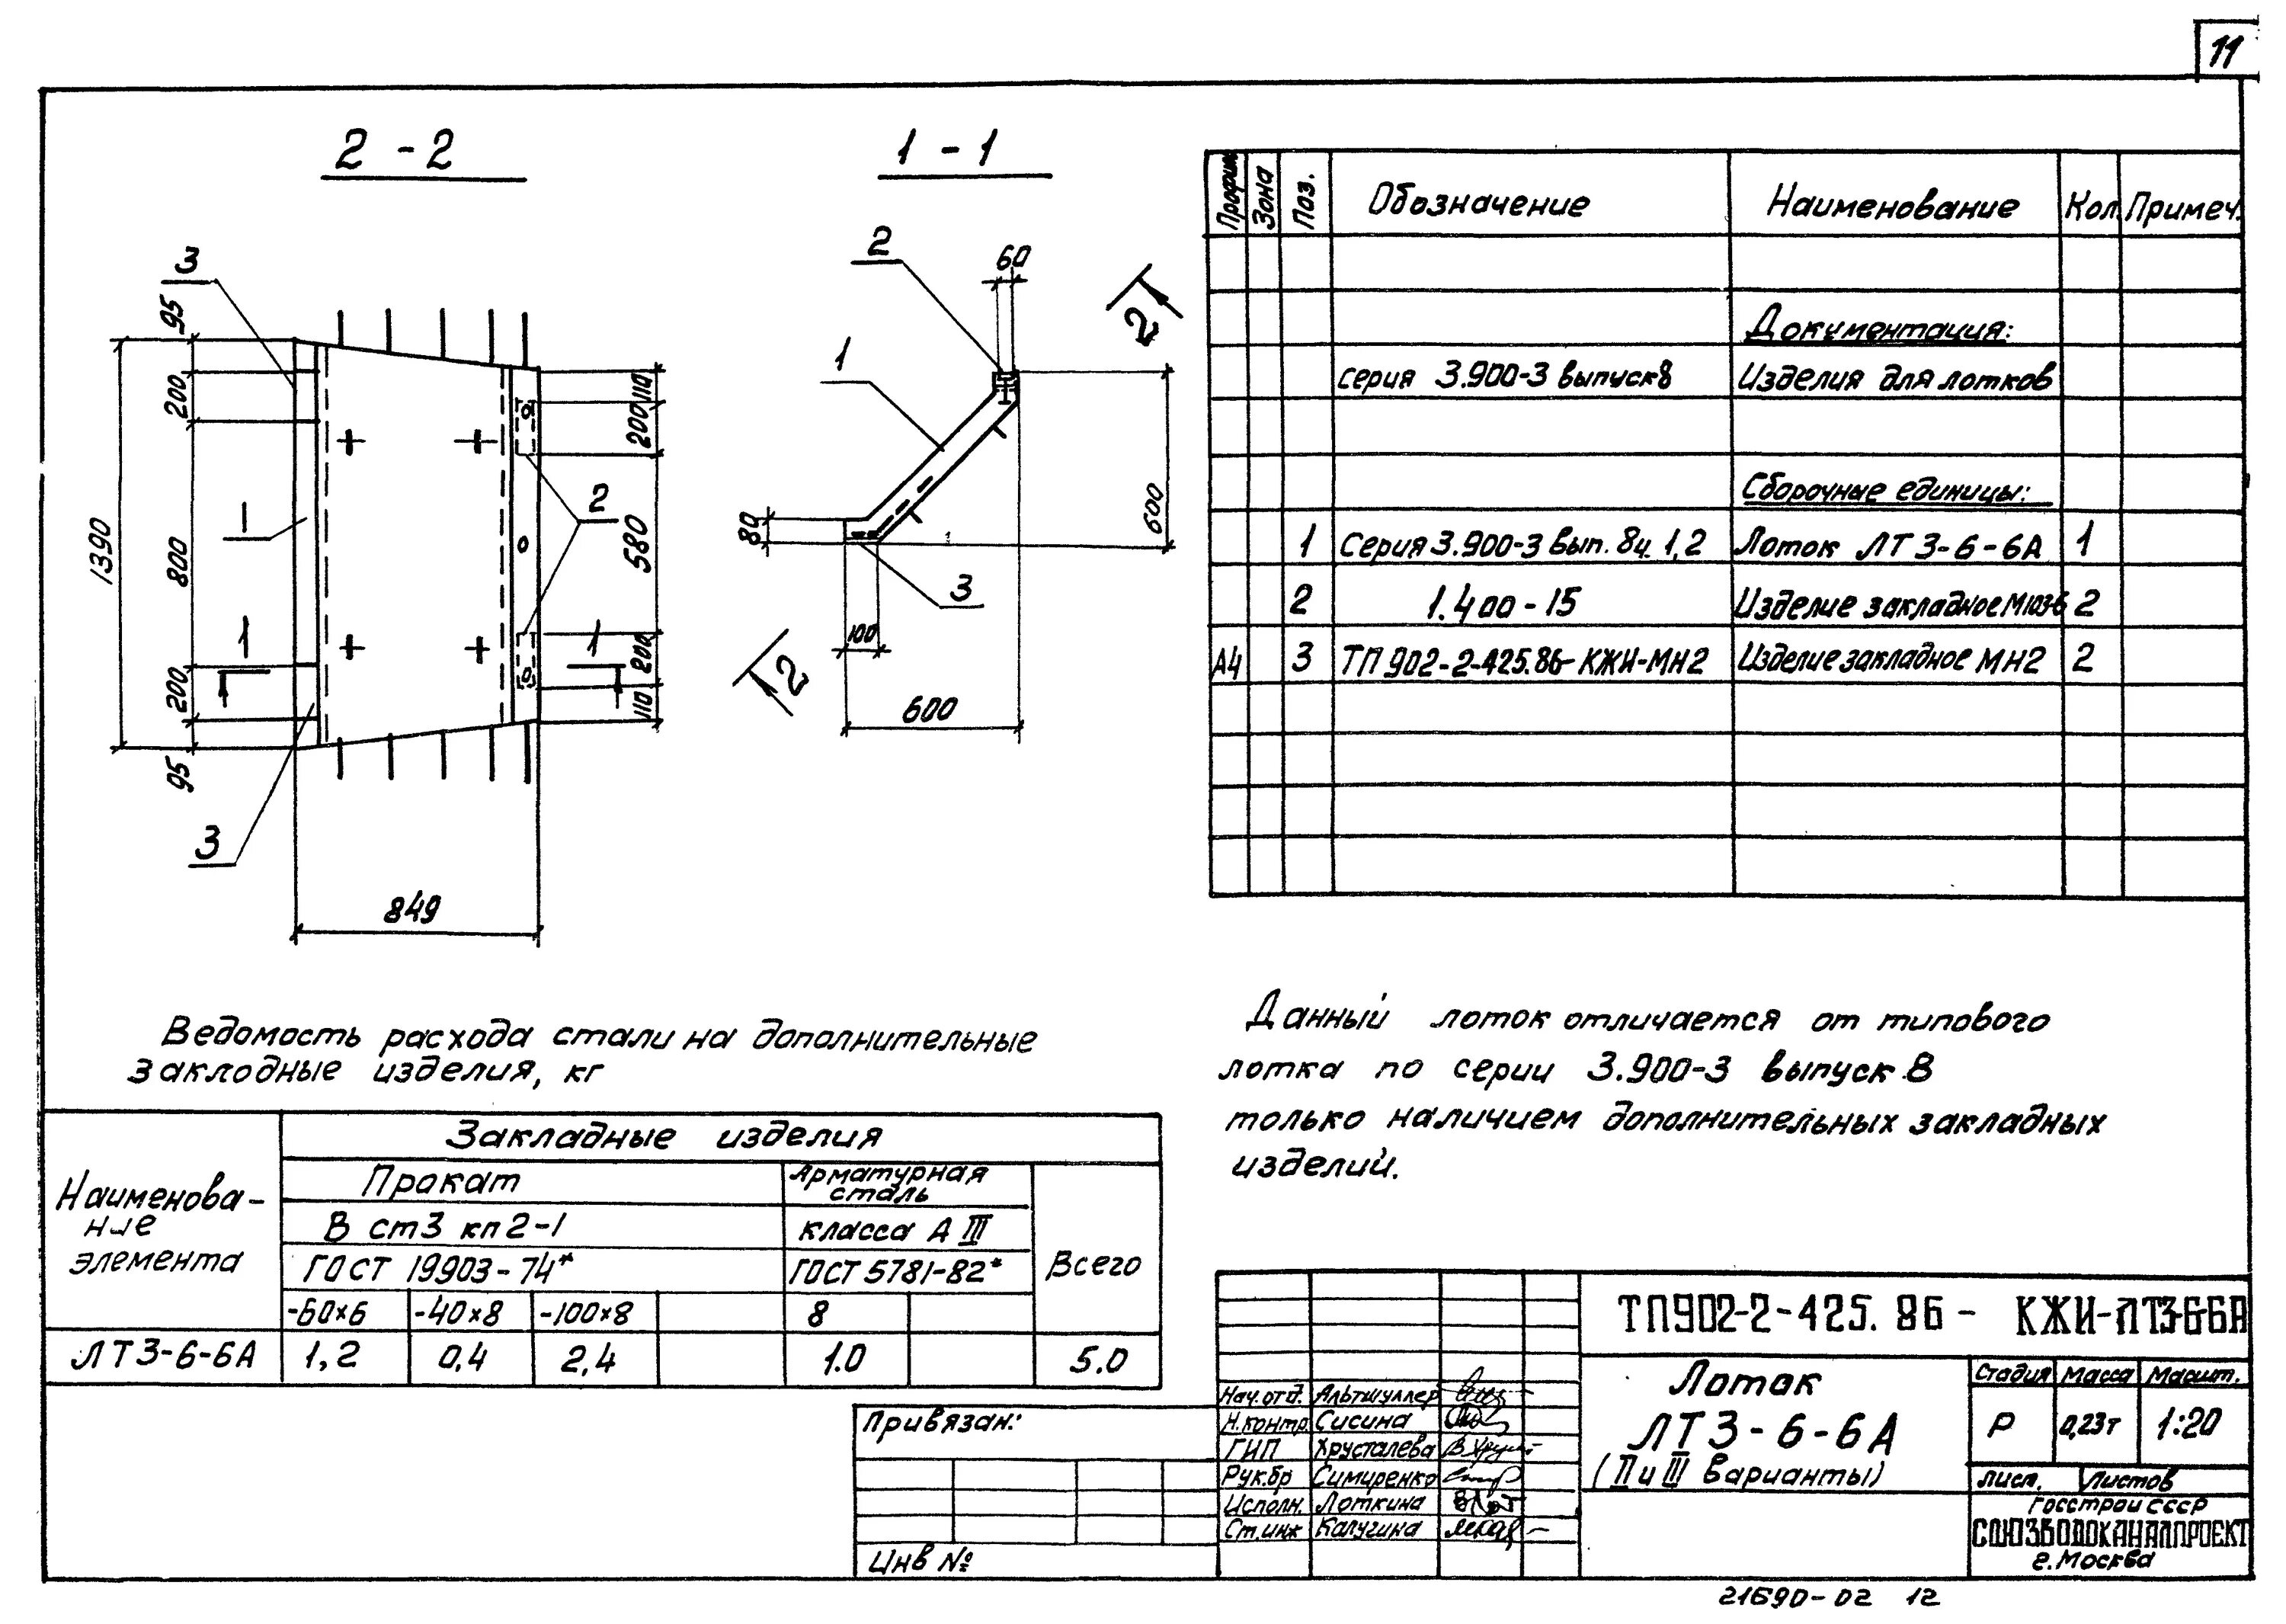 11
2 - 2
1 - 1
3
95
200
1390
800
200
95
1
1
1
110
200
580
200
110
2
3
849
2
60
1
2
80
600
3
100
2
600
Поз.
Зона
Обозначение
Наименование
Кол.
Примеч.
Документация:
серия 3.900-3 выпуск 8
Изделия для лотков
Сборочные единицы:
1 Серия 3.900-3 вып. 8 ч. 1,2 Лоток ЛТ 3-6-6А 1
2 1.400-15 Изделие закладное М103-6 2
А4 3 ТП 902-2-425.86-КЖИ-МН2 Изделие закладное МН2 2
Ведомость расхода стали на дополнительные
закладные изделия, кг
Наименова-
ние
элемента
Закладные изделия
Прокат
Арматурная
сталь
В ст3 кп 2-1
класса А III
ГОСТ 19903-74*
ГОСТ 5781-82*
Всего
-60×6 -40×8 -100×8 8
ЛТ3-6-6А 1,2 0,4 2,4 1.0 5.0
Данный лоток отличается от типового
лотка по серии 3.900-3 выпуск 8
только наличием дополнительных закладных
изделий.
Привязан:
Инв №
Нач.отд. Альтшуллер
Н.контр. Сисина
ГИП Хрусталева
Рук.бр Симиренко
Исполн. Лоткина
Ст.инж Калугина
ТП902-2-425.86 - КЖИ-ЛТ3-6-6А
Лоток
ЛТ3-6-6А
(II и III варианты)
Стадия Масса Масшт.
Р 0,23т 1:20
Лист. Листов
Госстрой СССР
СОЮЗВОДОКАНАЛПРОЕКТ
г.Москва
21690-02 12